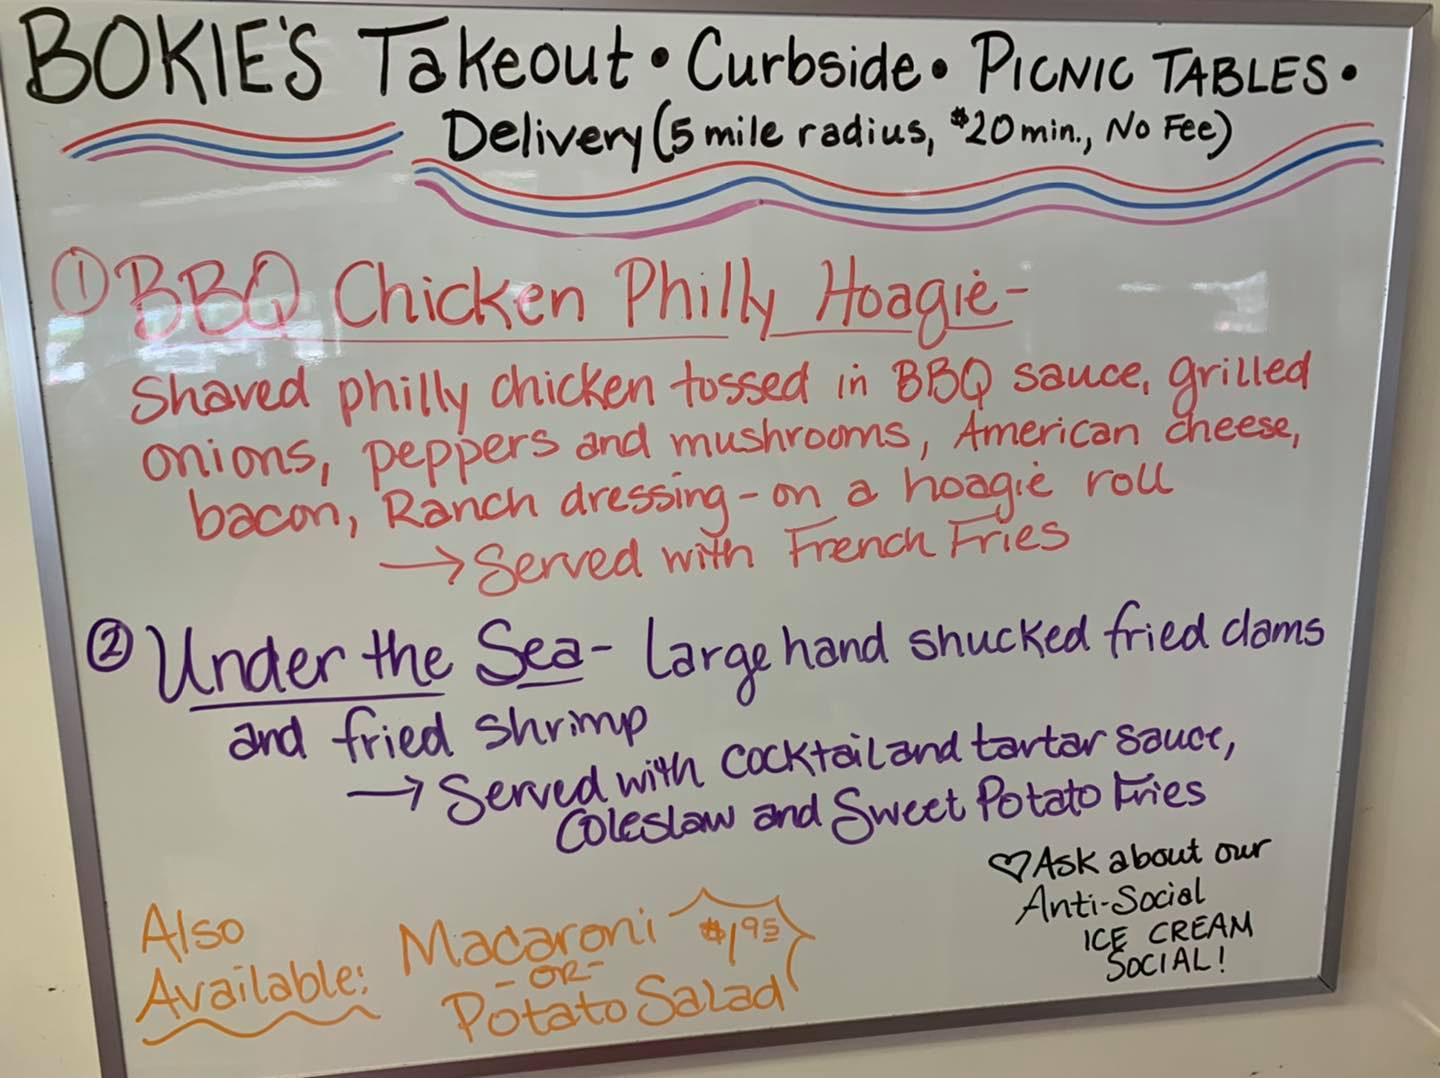 BOKIE'S Takeout • Curbside • PICNIC TABLES •
Delivery (5 mile radius, $20 min., No Fee)
① BBQ Chicken Philly Hoagie -
Shaved philly chicken tossed in BBQ sauce, grilled
onions, peppers and mushrooms, American cheese,
bacon, Ranch dressing - on a hoagie roll
→ Served with French Fries
② Under the Sea - Large hand shucked fried clams
and fried shrimp
→ Served with cocktail and tartar sauce,
Coleslaw and Sweet Potato Fries
♡ Ask about our
Anti-Social
ICE CREAM
SOCIAL!
Also
Available:
Macaroni $1.95
-OR-
Potato Salad